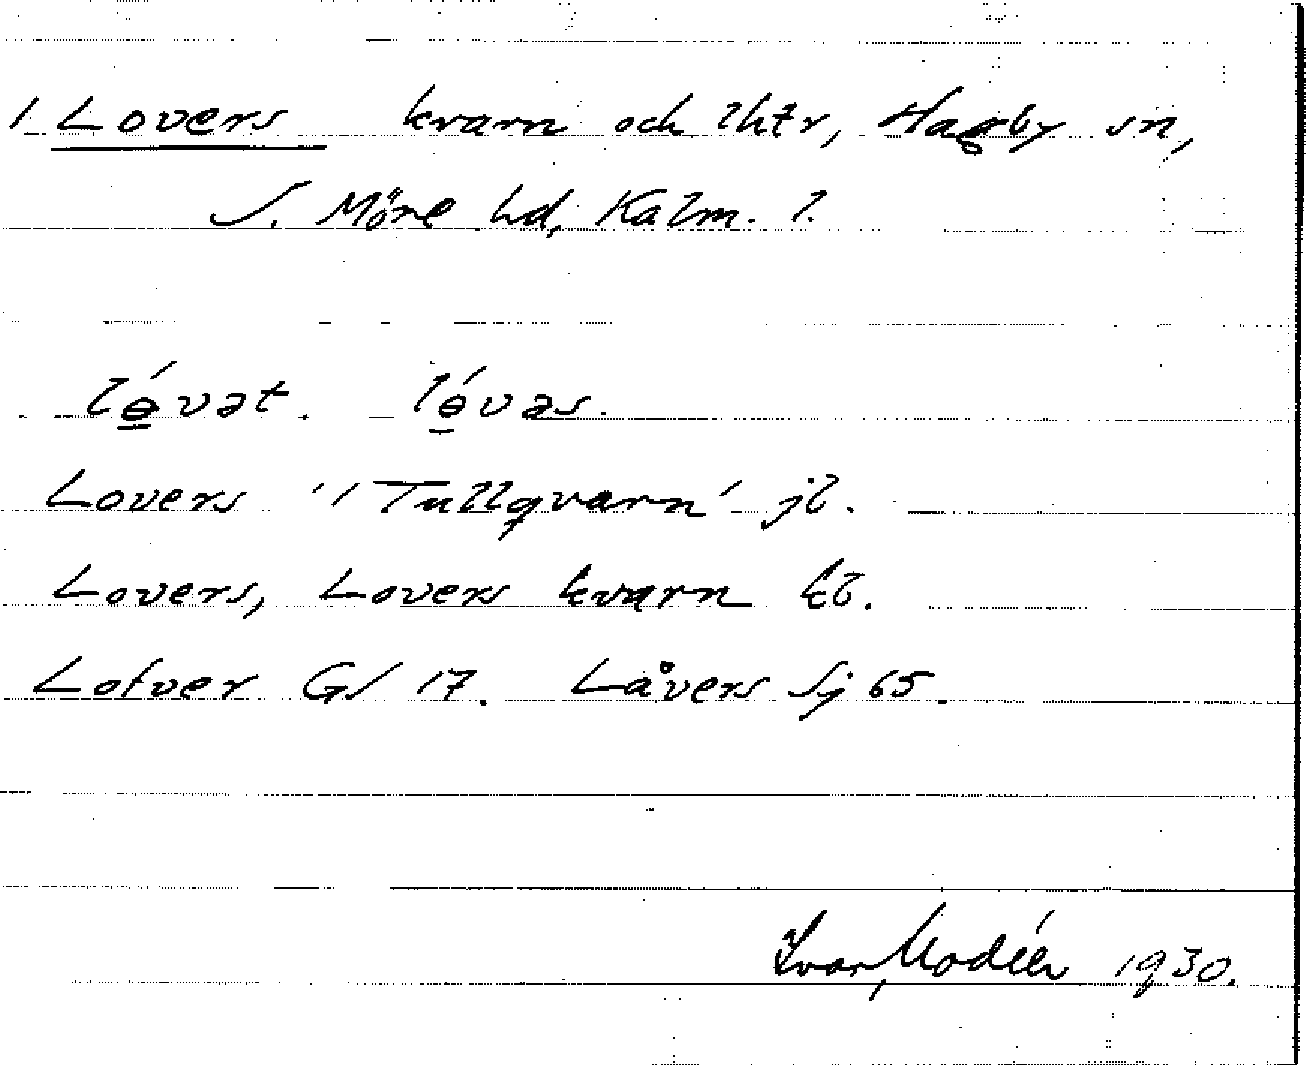 1 Lovers kvarn och lhtr, Hagby sn,
S. Möre hd, Kalm. l.
lé̱vət. lé̱vəs.
Lovers '1 Tullqvarn' jb.
Lovers, Lovers kvarn kb.
Lofver GS 17. Låvers Sj 65.
Ivar Modéer 1930.